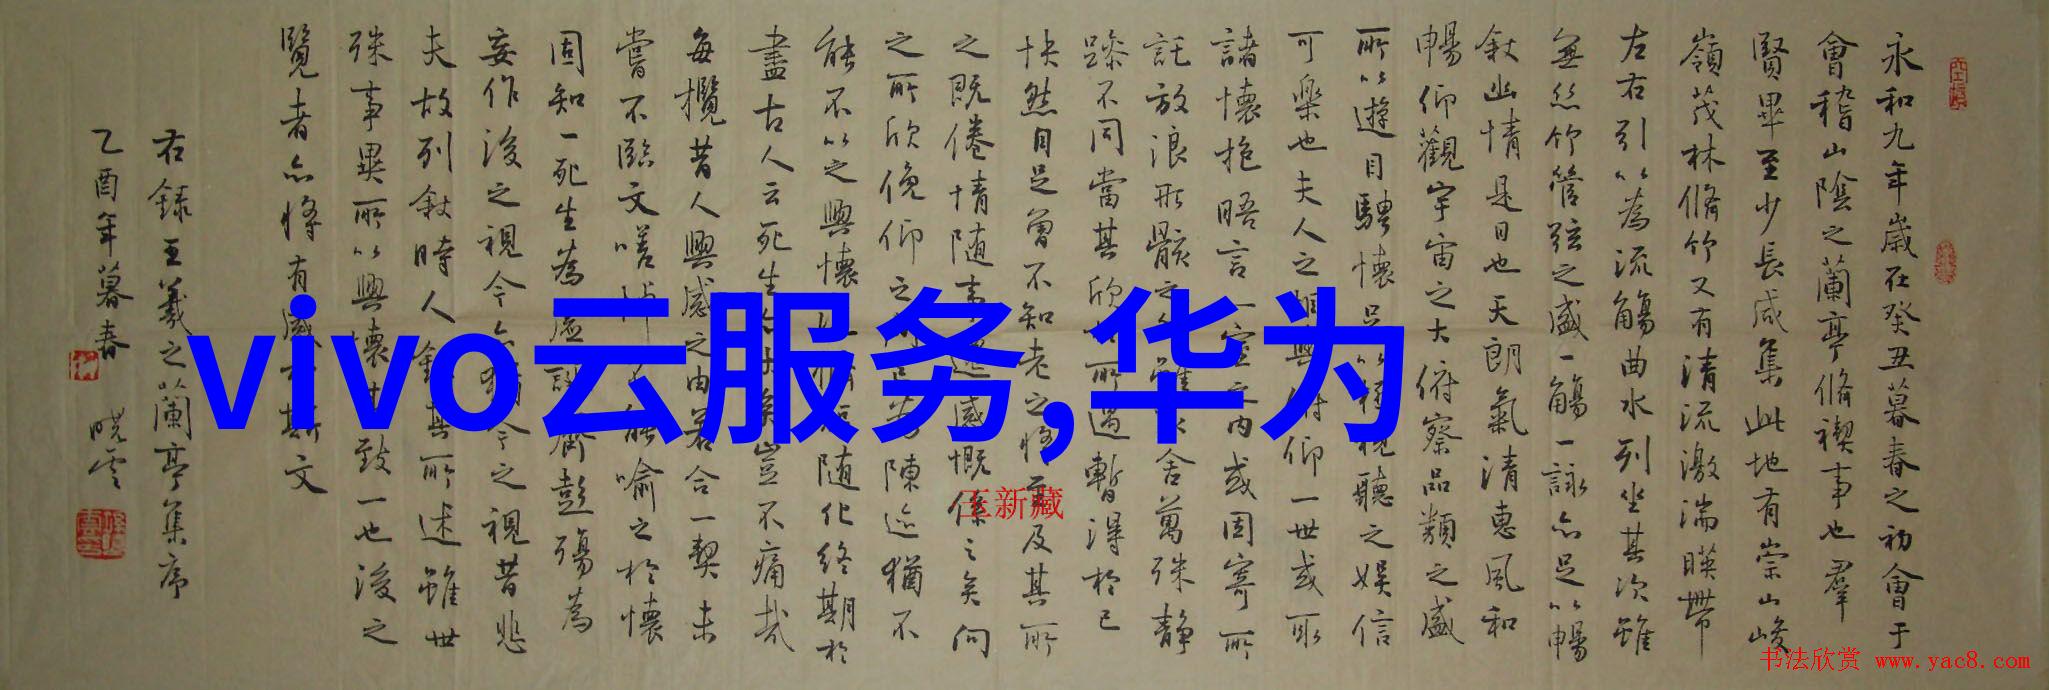 永和九年歲在癸丑暮春之初會于
會稽山陰之蘭亭脩禊事也羣
賢畢至少長咸集此地有崇山峻
嶺茂林脩竹又有清流激湍暎帶
左右引以為流觴曲水列坐其次雖
無絲竹管弦之盛一觴一詠亦足以暢
敘幽情是日也天朗氣清惠風和
暢仰觀宇宙之大俯察品類之盛
所以遊目騁懷足以極視聽之娛信
可樂也夫人之相與俯仰一世或取
諸懷抱晤言一室之內或因寄所
託放浪形骸之外雖取舍萬殊静
躁不同當其欣所遇暫得於己
快然自足曾不知老之將至及其所
之既倦情随事遷感慨係之矣向
之所欣俛仰之間為陳迹猶不
能不以之興懷短随化終期於
盡古人云死生亦大矣豈不痛哉
每攬昔人興感之由若合一契未
嘗不臨文嗟悼能喻之於懷
固知一死生為虛誕齊彭殤為
妄作後之視今亦猶今之視昔悲
夫故列敘時人錄其所述雖世
殊事異所以興懷其致一也後之
覽者亦將有感於斯文
右錄王羲之蘭亭集序
乙酉年暮春 晓雲
vivo云服务,华为
王新藏
书法欣赏 www.yac8.com